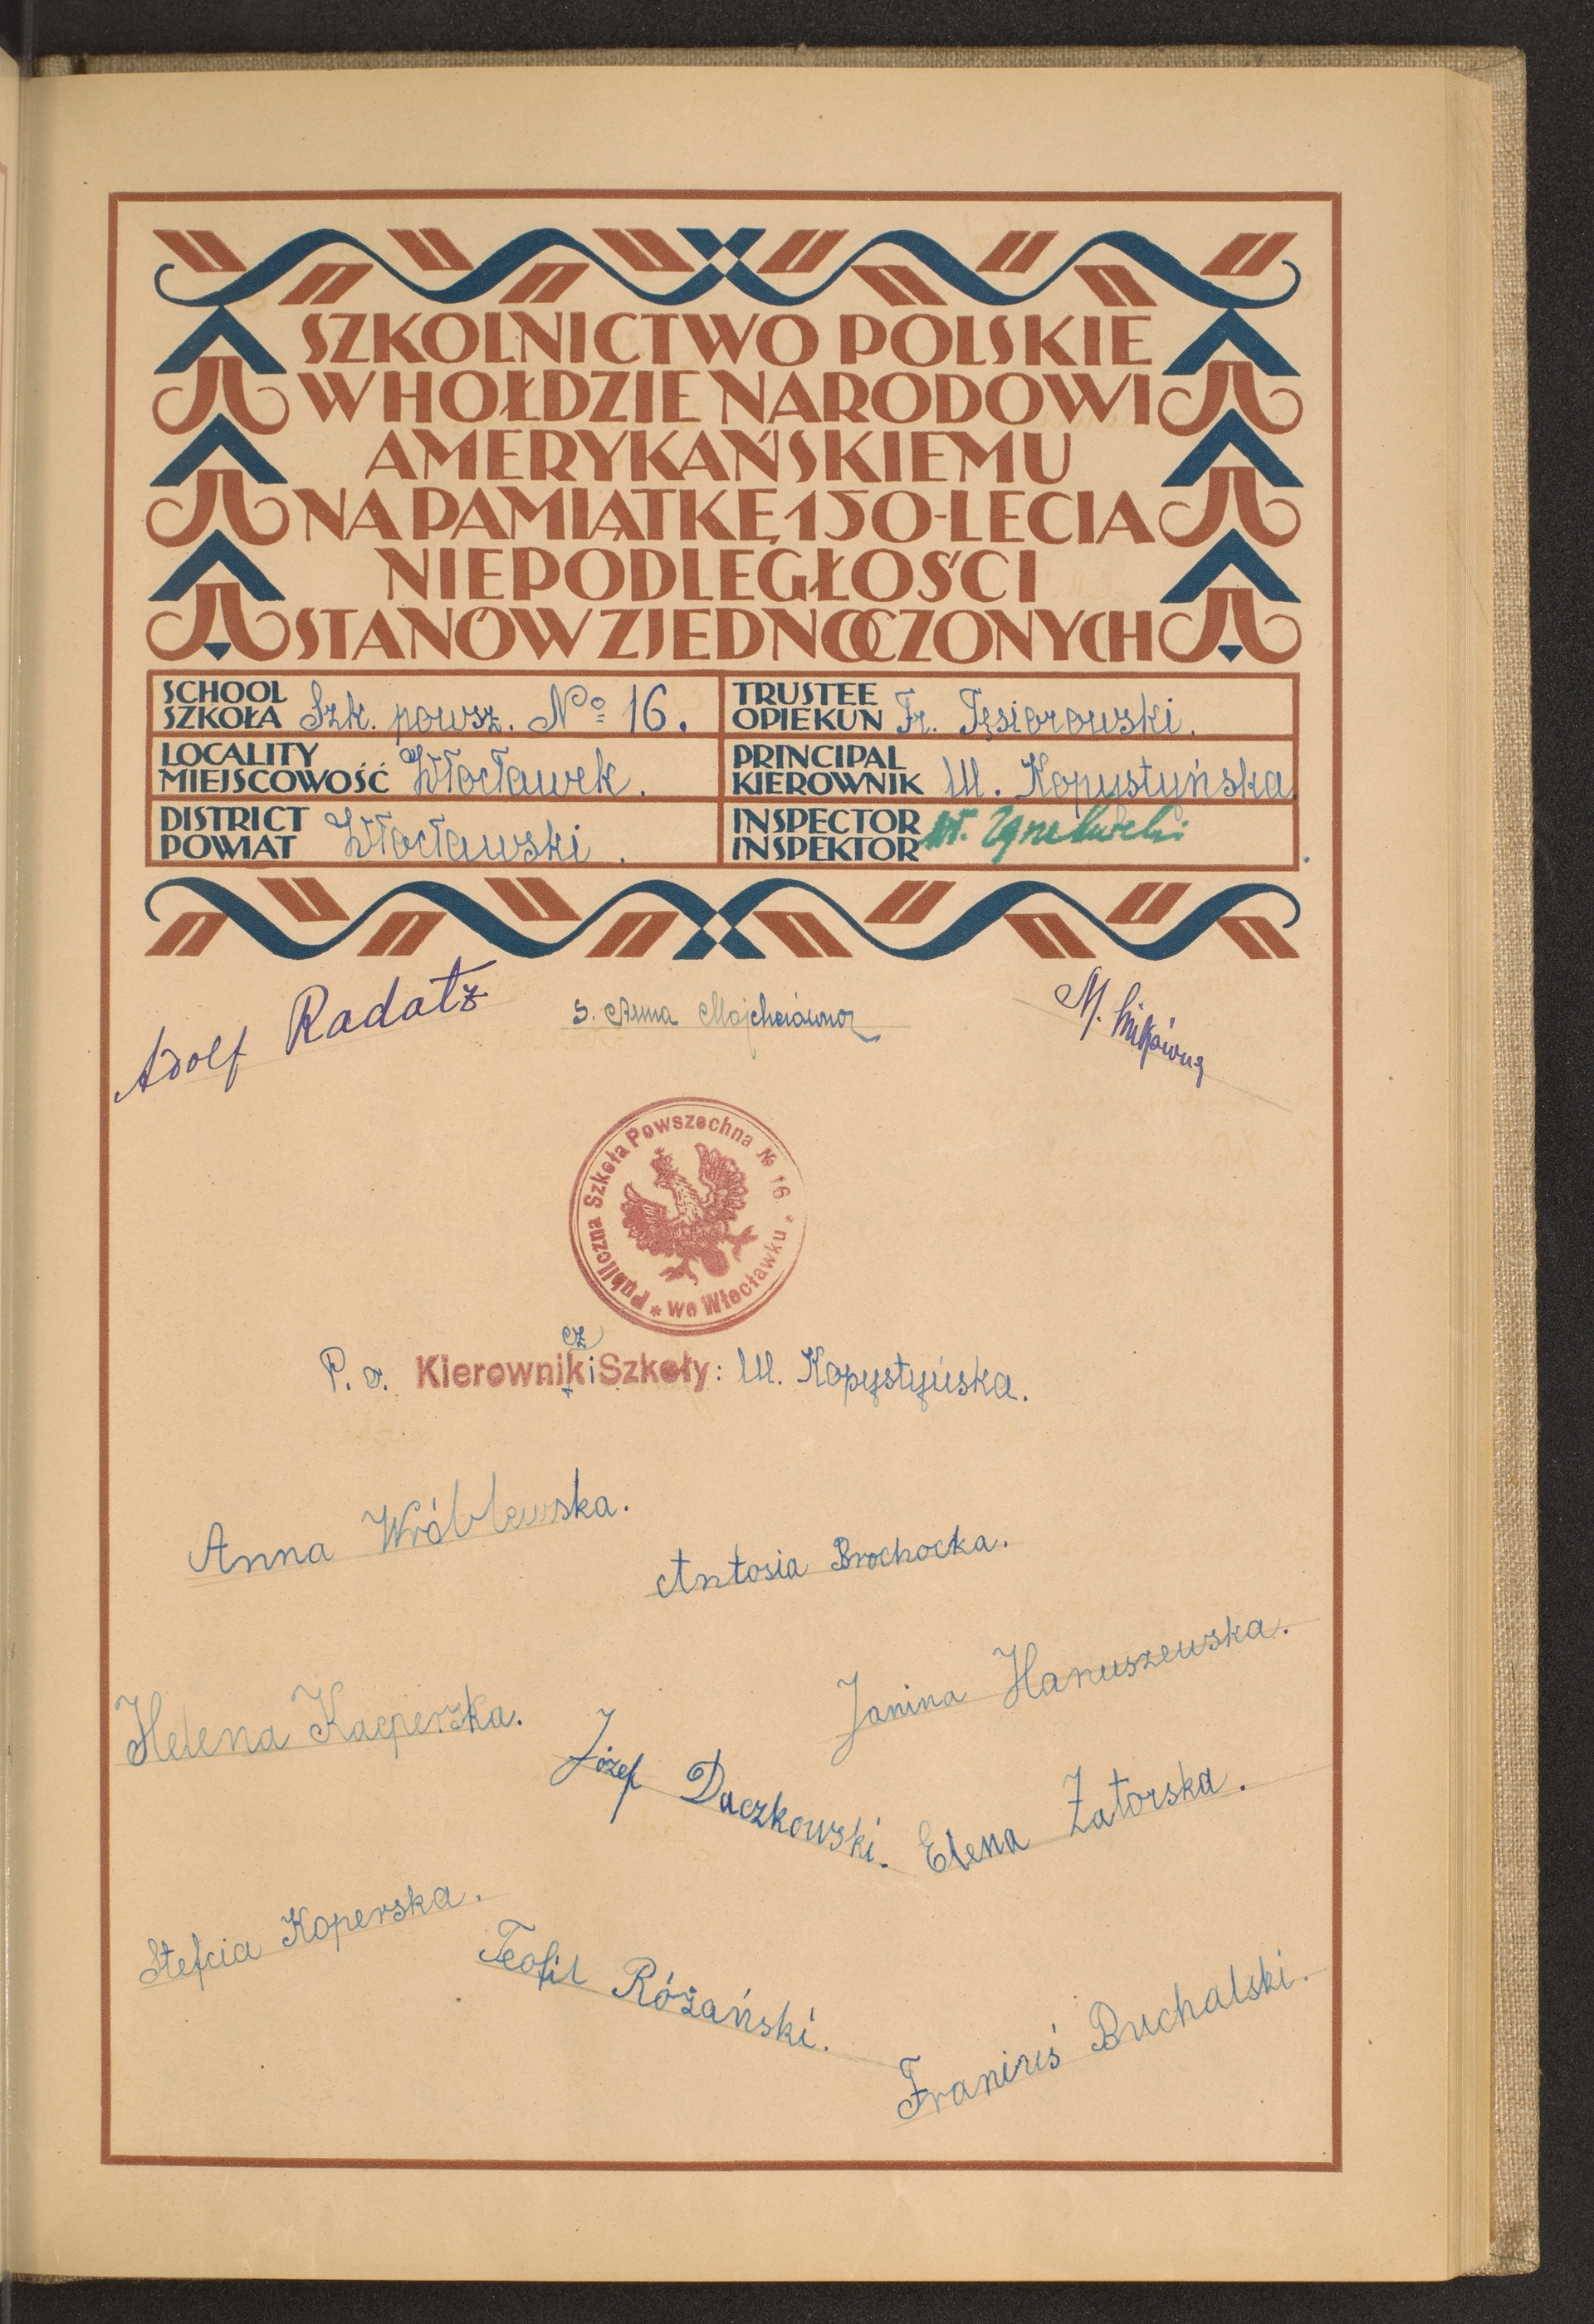 SZKOLNICTWO POLSKIE
W HOŁDZIE NARODOWI
AMERYKAŃSKIEMU
NA PAMIĄTKĘ 150-LECIA
NIEPODLEGŁOŚCI
STANÓW ZJEDNOCZONYCH
SCHOOL
SZKOŁA Szk. powsz. No 16.
TRUSTEE
OPIEKUN Fr. Tęsiorowski.
LOCALITY
MIEJSCOWOŚĆ Włocławek.
PRINCIPAL
KIEROWNIK M. Kopystyńska
DISTRICT
POWIAT Włocławski.
INSPECTOR
INSPEKTOR
Adolf Radatz
S. Anna Majcherówna
M.
Publiczna Szkoła Powszechna № 16 * we Włocławku *
P. o. Kierowniczki Szkoły: M. Kopystyńska.
Anna Wróblewska.
Antosia Brochocka.
Janina Hanuszewska.
Helena Kacperska.
Józef Daczkowski.
Elena Zatorska.
Stefcia Koperska.
Teofil Różański.
Franiuś Buchalski.